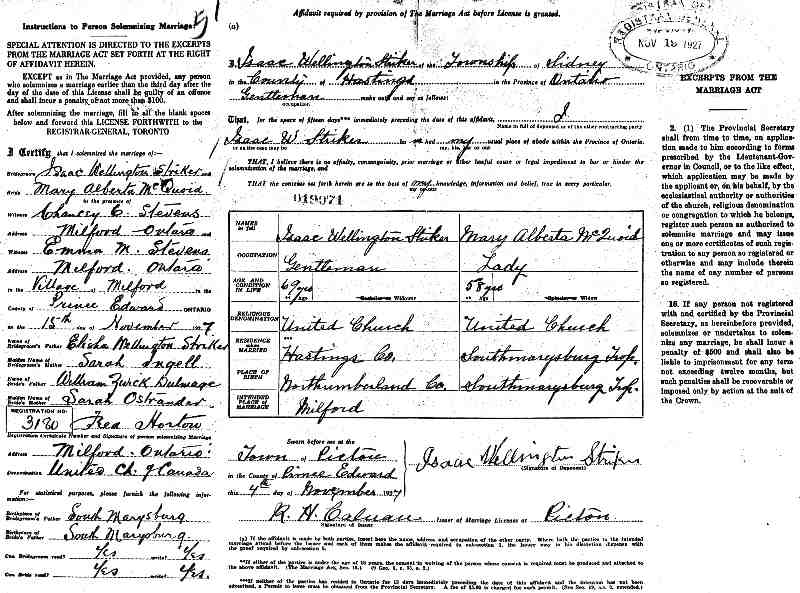 Instructions to Person Solemnizing Marriage
SPECIAL ATTENTION IS DIRECTED TO THE EXCERPTS
FROM THE MARRIAGE ACT SET FORTH AT THE RIGHT
OF AFFIDAVIT HEREIN.
EXCEPT as in The Marriage Act provided, any person
who solemnizes a marriage earlier than the third day after
the day of the date of this License shall be guilty of an offence
and shall incur a penalty of not more than $100.
After solemnizing the marriage, fill in all the blank spaces
below and forward this LICENSE FORTHWITH to the
REGISTRAR-GENERAL, TORONTO
I Certify that I solemnized the marriage of:—
Bridegroom Isaac Wellington Striker and
Bride Mary Alberta McQuoid
in the presence of
Witness Chancey C. Stevens
Address Milford Ontario and
Witness Emma M. Stevens
Address Milford. Ontario.
in the Village of Milford in the
County of Prince Edward ONTARIO
on the 15th day of November 1927
Name of Bridegroom's Father Elisha Wellington Striker
Maiden Name of Bridegroom's Mother Sarah Ingell
Name of Bride's Father William Zurck Dulmage
Maiden Name of Bride's Mother Sarah Ostrander
REGISTRATION NO. 3120 Fred Horton
Registration Certificate Number and Signature of person solemnizing Marriage
Address Milford. Ontario.
Denomination United Ch. of Canada
For statistical purposes, please furnish the following information:—
Birthplace of Bridegroom's Father South Marysburg
Birthplace of Bride's Father South Marysburg
Can Bridegroom read? Yes write? Yes
Can Bride read? Yes write? Yes.
Affidavit required by provision of The Marriage Act before License is granted.
(a)
I, Isaac Wellington Striker of the Township of Sidney
in the County of Hastings in the Province of Ontario
Gentleman make oath and say as follows:
occupation
That, for the space of fifteen days*** immediately preceding the date of this affidavit, I
Name in full of deponent or of the other contracting party
Isaac W. Striker had my usual place of abode within the Province of Ontario.
THAT, I believe there is no affinity, consanguinity, prior marriage or other lawful cause or legal impediment to bar or hinder the
solemnization of the marriage, and
THAT the contents set forth herein are to the best of my knowledge, information and belief, true in every particular.
019971
NAMES in full Isaac Wellington Striker Mary Alberta McQuoid
OCCUPATION Gentleman Lady
AGE AND CONDITION IN LIFE 69 yrs Age Bachelor or Widower 58 yrs Age Spinster or Widow
RELIGIOUS DENOMINATION United Church United Church
RESIDENCE when MARRIED Hastings Co. Southmarysburg Twp.
PLACE OF BIRTH Northumberland Co. Southmarysburg Twp.
INTENDED PLACE OF MARRIAGE Milford
Sworn before me at the
Town of Picton
in the County of Prince Edward
this 4th day of November 1927
Isaac Wellington Striker
(Signature of Deponent)
R. H. Issuer of Marriage Licenses at Picton
Signature of Issuer
REGISTRAR GENERAL
NOV 18 1927
ONTARIO
EXCERPTS FROM THE
MARRIAGE ACT
2. (1) The Provincial Secretary
shall from time to time, on application
made to him according to forms
prescribed by the Lieutenant-Governor
in Council, or to the like effect,
which application may be made by
the applicant or, on his behalf, by the
ecclesiastical authority or authorities
of the church, religious denomination
or congregation to which he belongs,
register such person as authorized to
solemnize marriage and may issue
one or more certificates of such registration
to any person so registered or
otherwise and may include therein
the name of any number of persons
so registered.
16. If any person not registered
with and certified by the Provincial
Secretary, as hereinbefore provided,
solemnizes or undertakes to solemnize
any marriage, he shall incur a
penalty of $500 and shall also be
liable to imprisonment for any term
not exceeding twelve months, but
such penalties shall be recoverable or
imposed only by action at the suit of
the Crown.